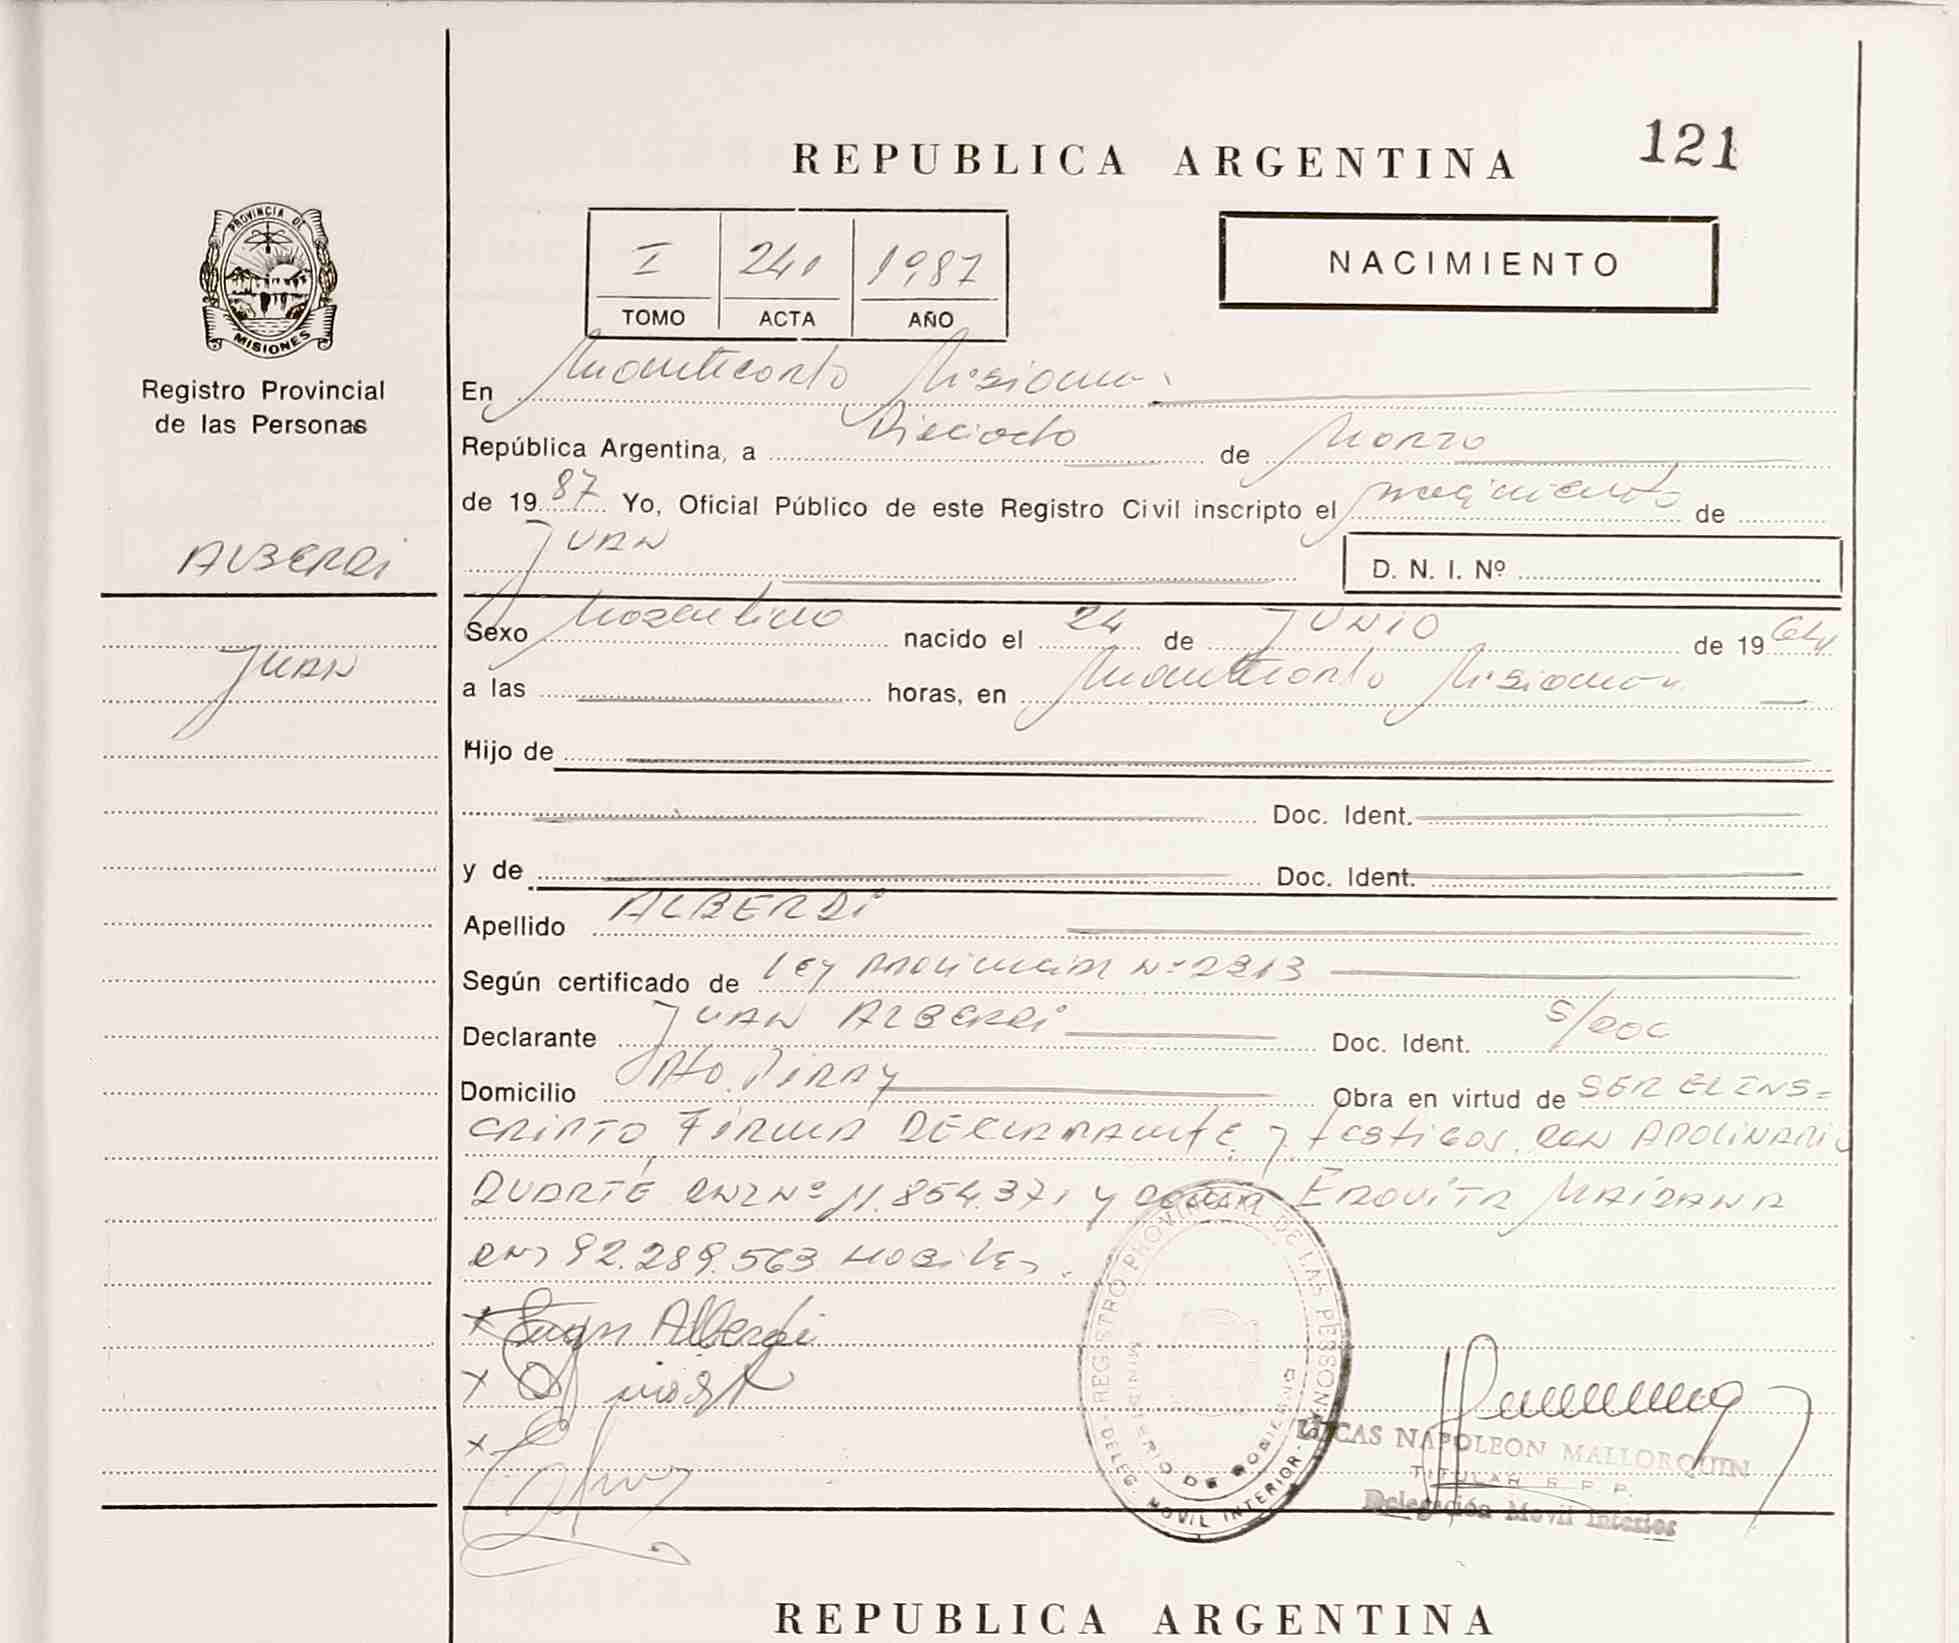 121
REPUBLICA ARGENTINA
NACIMIENTO
I 241 1987
TOMO ACTA AÑO
PROVINCIA DE MISIONES
Registro Provincial
de las Personas
ALBERDI
JUAN
En Montecarlo Misiones
República Argentina, a Dieciocho de Marzo
de 1987 Yo, Oficial Público de este Registro Civil inscripto el nacimiento de
JUAN D. N. I. Nº
Sexo Masculino nacido el 24 de JUNIO de 1964
a las horas, en Montecarlo Misiones
Hijo de
Doc. Ident.
y de Doc. Ident.
Apellido ALBERDI
Según certificado de Ley Provincial Nº 2213
Declarante JUAN ALBERDI Doc. Ident. S/DOC
Domicilio Pto. Piray Obra en virtud de SER EL INS-
CRIPTO FIRMA DECLARANTE y testigos, DON APOLINARIO
DUARTE DNI Nº 11.854.371 y DOÑA MAIDANA
DNI 92.289.563 HOBILES.
x Juan Alberdi
x
x
REGISTRO PROVINCIAL DE LAS PERSONAS
MINISTERIO DE GOBIERNO
DELEG. MOVIL INTERIOR
LUCAS NAPOLEON MALLORQUIN
TITULAR R. P. P.
Delegación Movil Interior
REPUBLICA ARGENTINA